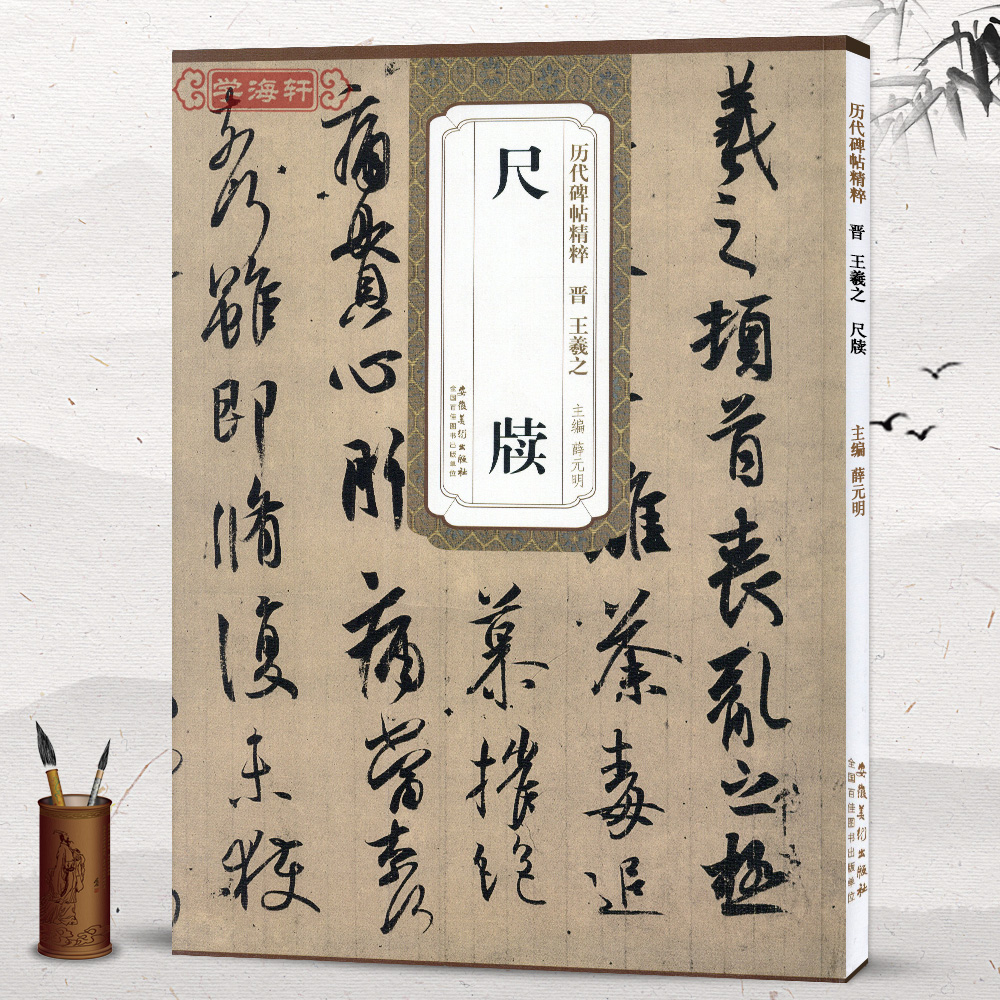 学海轩
羲之顿首丧乱之极
离荼毒追
慕摧绝
痛贯心肝痛当奈何
奈何虽即修复未获
历代碑帖精粹 晋 王羲之
尺牍
主编 薛元明
安徽美术出版社
全国百佳图书出版单位
历代碑帖精粹 晋 王羲之 尺牍
主编 薛元明
安徽美术出版社
全国百佳图书出版单位